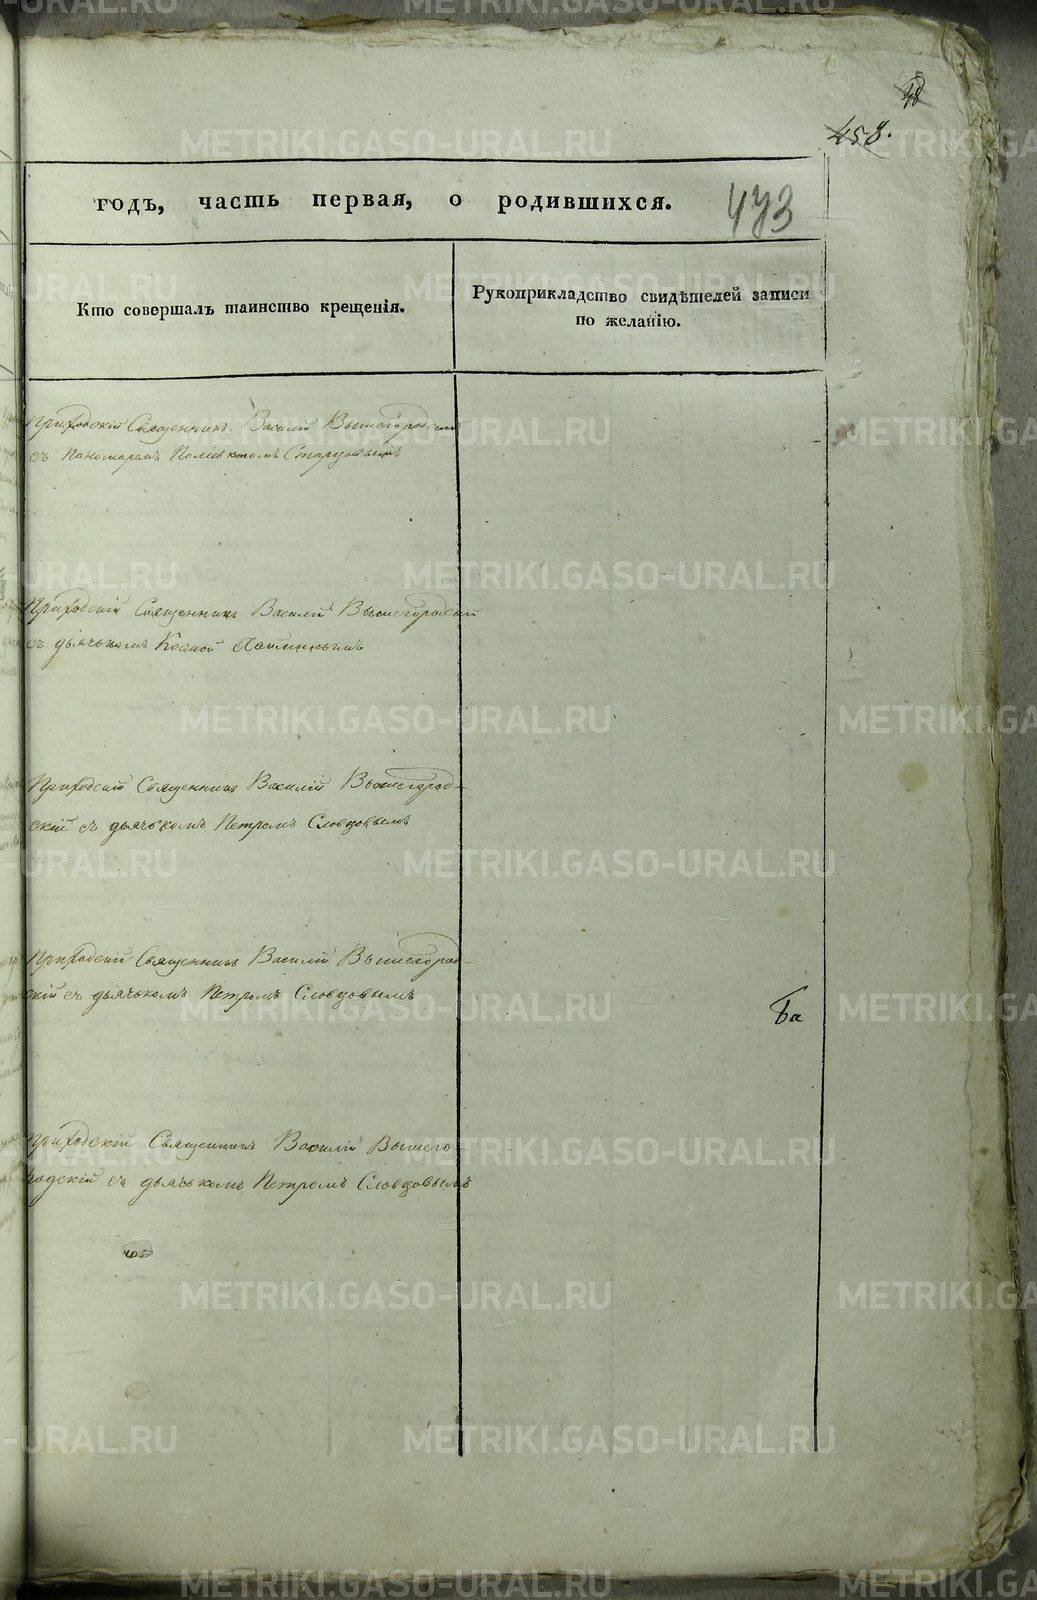 458.
годъ, часть первая, о родившихся. 473
Кто совершалъ таинство крещенія.
Рукоприкладство свидѣтелей записи
по желанію.
Приходскій Священникъ Василій Вышегородскій
съ Пономаремъ Полиевктомъ Старцовымъ
Приходскій Священникъ Василій Вышегородскій
съ дьячькомъ Космой
Приходскій Священникъ Василій Вышегород-
скій съ дьячькомъ Петромъ Словцовымъ
Приходскій Священникъ Василій Вышегород-
скій съ дьячькомъ Петромъ Словцовымъ
Ба
Приходскій Священникъ Василій Вышего
родскій съ дьячькомъ Петромъ Словцовымъ
METRIKI.GASO-URAL.RU